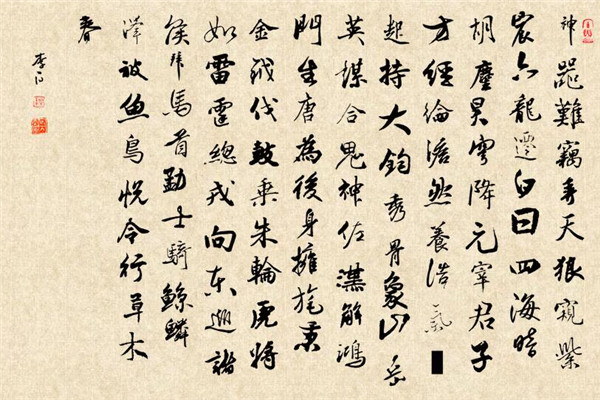 神器難竊弄天狼窺紫
宸六龍遷白日四海暗
胡塵昊穹降元宰君子
方經綸澹然養浩氣
起持大鈞秀骨象山岳
英謀合鬼神佐漢解鴻
門生唐為後身擁旄秉
金鉞伐鼓乘朱輪虎將
如雷霆總戎向東巡諸
侯拜馬首勐士騎鯨鱗
澤被魚鳥悅令行草木
春